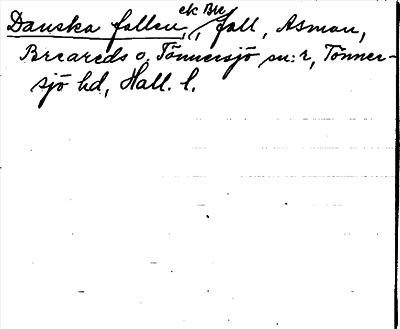 ek Ble
Danska fallen, fall, Asman,
Breareds o. Tönnersjö sn:r, Tönner-
sjö hd, Hall. l.